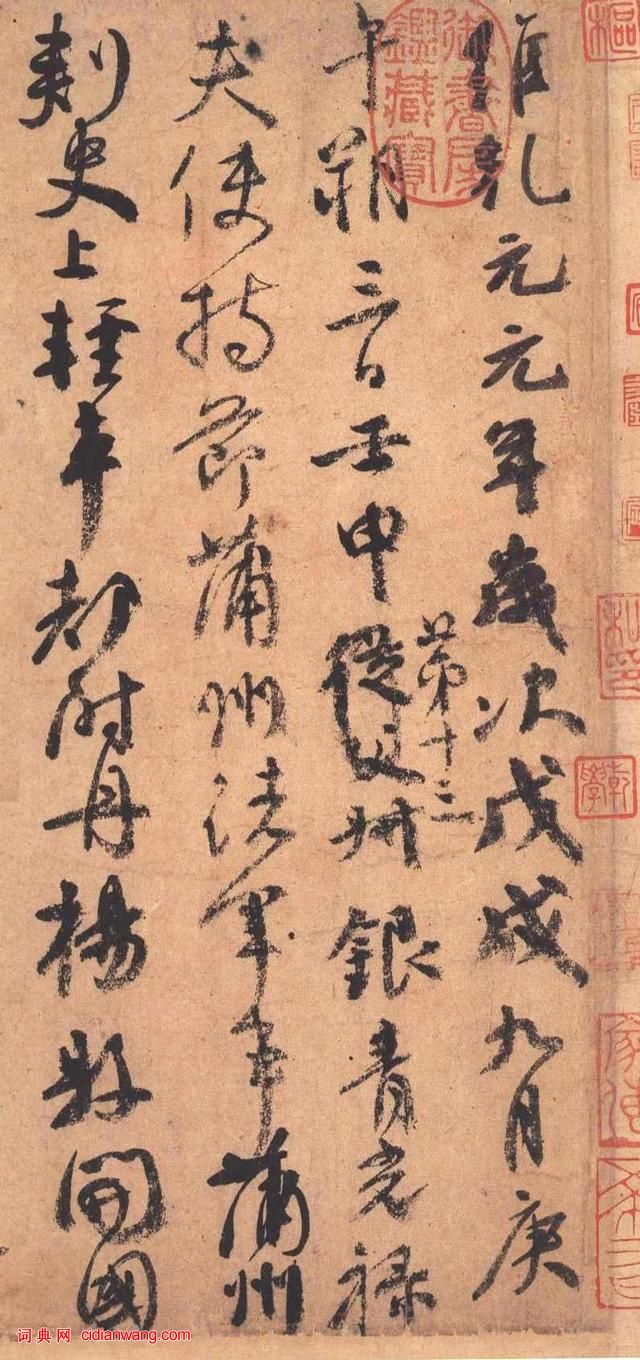 維乾元元年歲次戊戌九月庚
午朔三日壬申第十三從父叔銀青光祿
夫使持節蒲州諸軍事蒲州
刺史上輕車都尉丹楊縣開國
御書房鑑藏寶
乾學
词典网 cidianwang.com